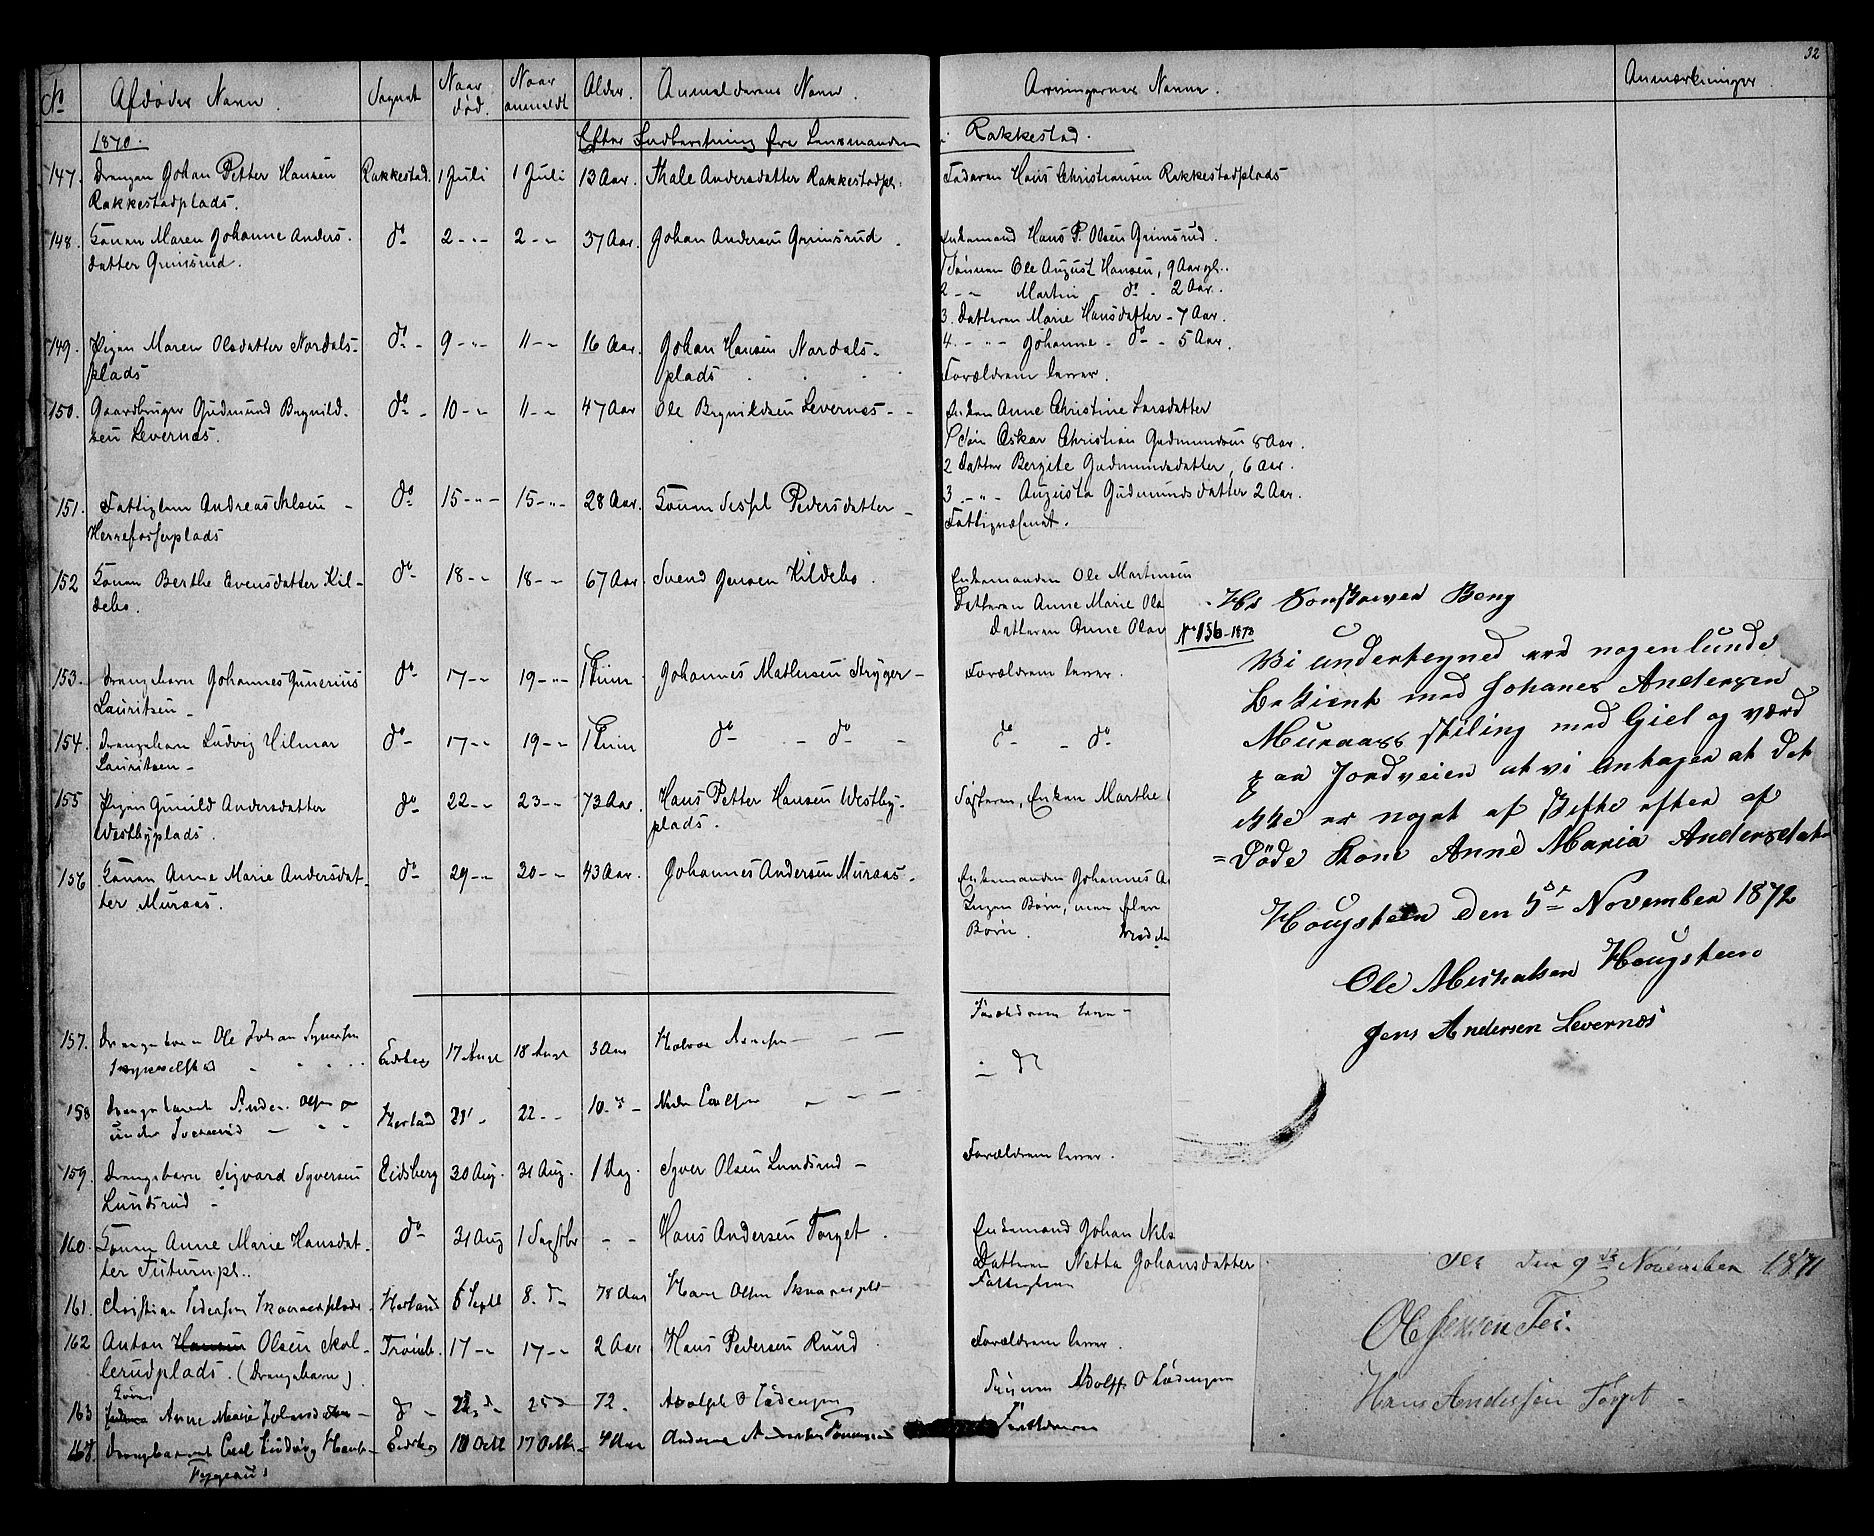 32
No Afdødes Navn. Sognet Naar død. Naar anmeldt Alder. Anmelderens Navn. Arvingernes Navne. Anmærkninger
1870. Efter Indberetning fra Lensmanden i Rakkestad.
147. Drengen Johan Petter Hansen Rakkestad. 1 Juli 1 Juli 13 Aar. Thale Andersdatter Rakkestadpl. Faderen Hans Christiansen Rakkestadplads
Rakkestadplads.
148. Konen Maren Johanne Anders- do 2 - " - 2 - " - 37 Aar. Johan Andersen Grimsrud. Enkemand Hans P. Olsen Grimsrud.
datter Grimsrud.
1 Sønnen Ole August Hansen, 9 Aar gl.
2 - " - Martin - do - 2 Aar.
3. Datteren Marie Hansdatter - 7 Aar.
149. Pigen Maren Olsdatter Nordals- do - 9 - " - 11 - " - 16 Aar. Johan Hansen Nordals- 4. - " - Johanne - do - 5 Aar.
plads plads Forældrene lever.
150. Gaardbruger Gudmund Brynild- do - 10 - " - 11 - " - 47 Aar Ole Brynildsen Levernes - Enken Anne Christine Larsdatter
sen Levernes. 1 Søn Oskar Christian Gudmundsen 8 Aar.
2 Datter Bergite Gudmundsdatter, 6 Aar.
151. Fattiglem Andreas Nilsen - do 15 - " - 15 - " - 28 Aar. Konen Sesel Pedersdatter - 3 - " - Augusta Gudmundsdatter 2 Aar.
Herrefosserplads Fattigvæsenet.
152 Konen Berthe Evensdatter Kil- do 18 - " - 18 - " - 67 Aar Svend Jensen Kildebo. Enkemanden Ole Martinsen
debo. Datteren Anne Marie Ols
Datteren Anne Olav
153. Drengebarn Johannes Gunerius do 17 - " - 19 - " - 1 Time Johannes Mathisen Stryger - Forældrene lever.
Lauritsen -
154. Drengebarn Ludvig Hilmar do - 17 - " - 19 - " - 1 Time do - do - do - do
Lauritsen -
155 Pigen Gunild Andersdatter do 22 - " - 23 - " - 73 Aar. Hans Petter Hansen Westby- Søsteren, Enken Marthe
Westbyplads. plads.
156 Konen Anne Marie Andersdat- do - 29 - " - 30 - " - 43 Aar. Johannes Andersen Muraas. Enkemanden Johannes A
ter Muraas. Ingen Børn, men flere
Børn.
157. Ole Johan Syversen Eidsberg 17 Aug 18 Aug 3 Aar Halvor Forældrene lever -
158 Olsen Herland 21 22 - " 10 - do
under
159. Drengebarn Sigvard Syversen Eidsberg 30 Aug. 31 Aug. 1 Dag. Syver Olsen Lundsrud - Forældrene lever.
Lundsrud -
160. Konen Anne Marie Hansdat- do 31 Aug 1 Septbr - - Hans Andersen Torget. Enkemand Johan Nils
ter Futurumpl. Datteren Netta Johansdatter
161. Christian Pedersen Herland 6 Septb 8. do 78 Aar Olsen Fattiglem
162 Anton Hansen Olsen Skol- Trømb. 17 - " 17 - " 2 Aar Hans Pedersen Ruud Forældrene lever.
lerudplads. (Drengebarn).
163 Konen Anne Marie do - 22 do 25 do 72. Adolph O Sønnen Adolff O
164. Drengebarnet Carl Ludvig Hans- Eidsberg 10 Octb 17 Octb 4 Aar Forældrene
Hr Sorskriver Berg
No 156-1870
Vi undertegned err nogenlunde
bekient med Johanes Andersen
Muraass stiling med Giel og værd
paa Jordveien at vi antager at det
ikke er noget af skifte efter af
= døde Kone Anne Maria Andersdatr
Hougsteen den 5te November 1872
Ole Hougsteen
Jens Andersen Levernæs
den 9de November 1871
Ole Jensen Tei.
Hans Andersen Torget -